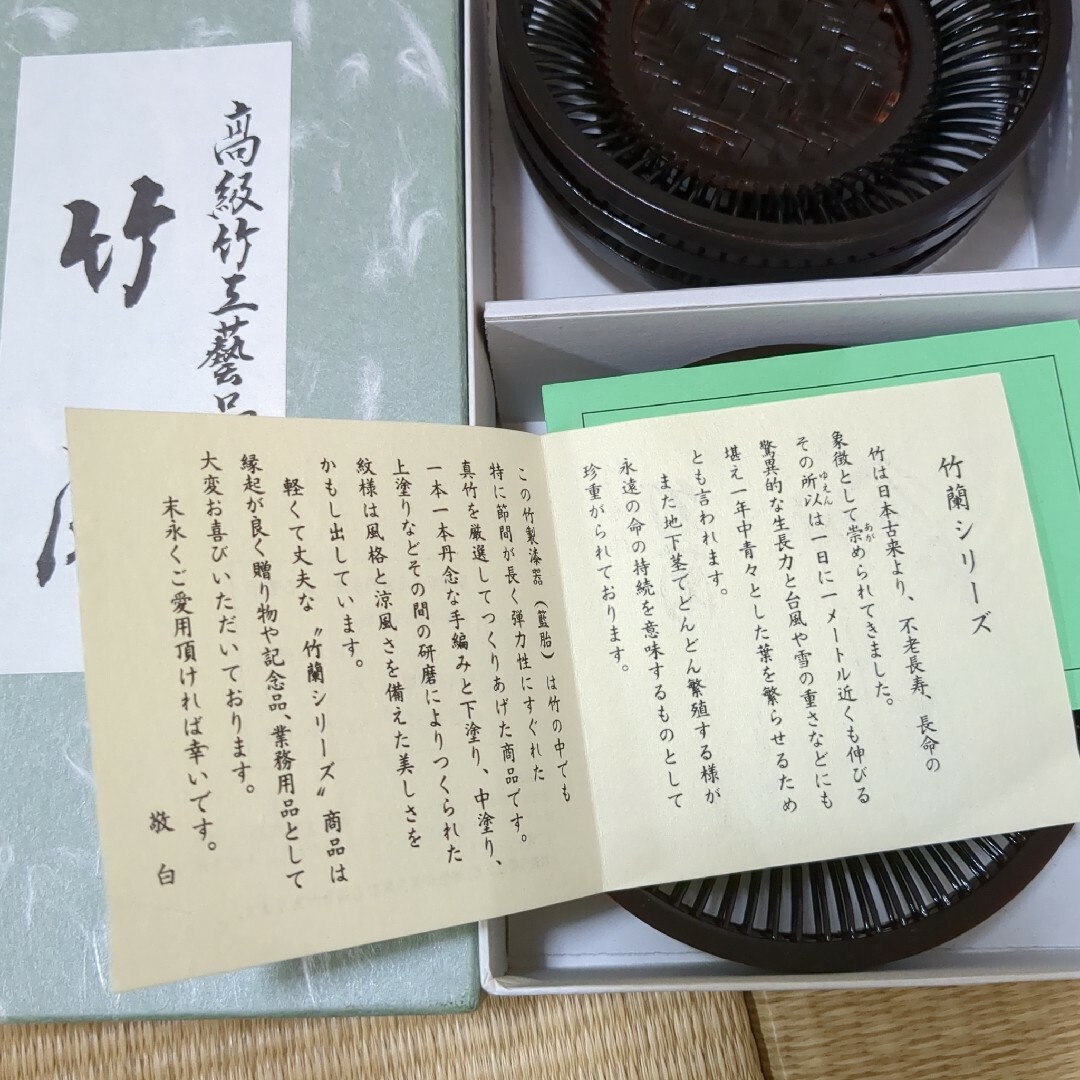 高級竹工藝品
竹
竹蘭シリーズ
竹は日本古来より、不老長寿、長命の
象徴として崇められてきました。
その所以は一日に一メートル近くも伸びる
驚異的な生長力と台風や雪の重さなどにも
堪え一年中青々とした葉を繁らせるため
とも言われます。
また地下茎でどんどん繁殖する様が
永遠の命の持続を意味するものとして
珍重がられております。
この竹製漆器(籃胎)は竹の中でも
特に節間が長く弾力性にすぐれた
真竹を厳選してつくりあげた商品です。
一本一本丹念な手編みと下塗り、中塗り、
上塗りなどその間の研磨によりつくられた
紋様は風格と涼風さを備えた美しさを
かもし出しています。
軽くて丈夫な〝竹蘭シリーズ〟商品は
縁起が良く贈り物や記念品、業務用品として
大変お喜びいただいております。
末永くご愛用頂ければ幸いです。
敬白